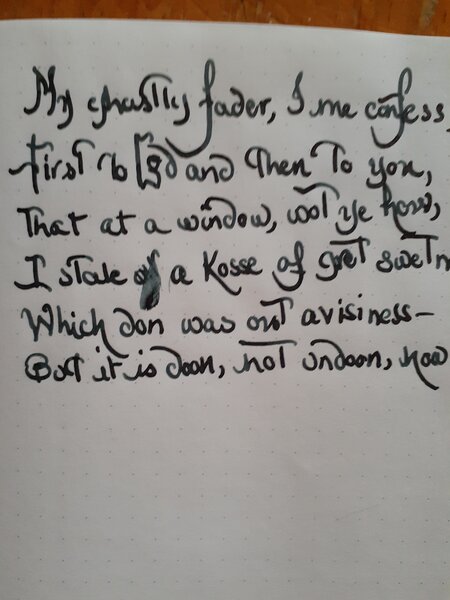 My ghastly fader, I me confess
First to God and Then To you,
That at a window, wot ye how,
I stale of a Kosse of gret swetn
Which don was out avisiness—
But it is doon, not undoon, now